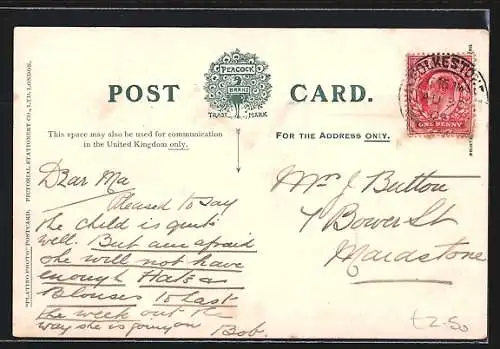 POST CARD.
PEACOCK
BRAND
TRADE MARK
This space may also be used for communication
in the United Kingdom only.
FOR THE ADDRESS ONLY.
"PLATINO-PHOTO" POSTCARD. PICTORIAL STATIONERY CO., LTD. LONDON.
FOLKESTONE
ONE PENNY
Dear Ma
Pleased to say
the child is quite
well. But am afraid
she will not have
enough Hats &
Blouses to last
the week out the
way she is going on
Bob.
Mrs J Button
Bower St
Maidstone
£2-50